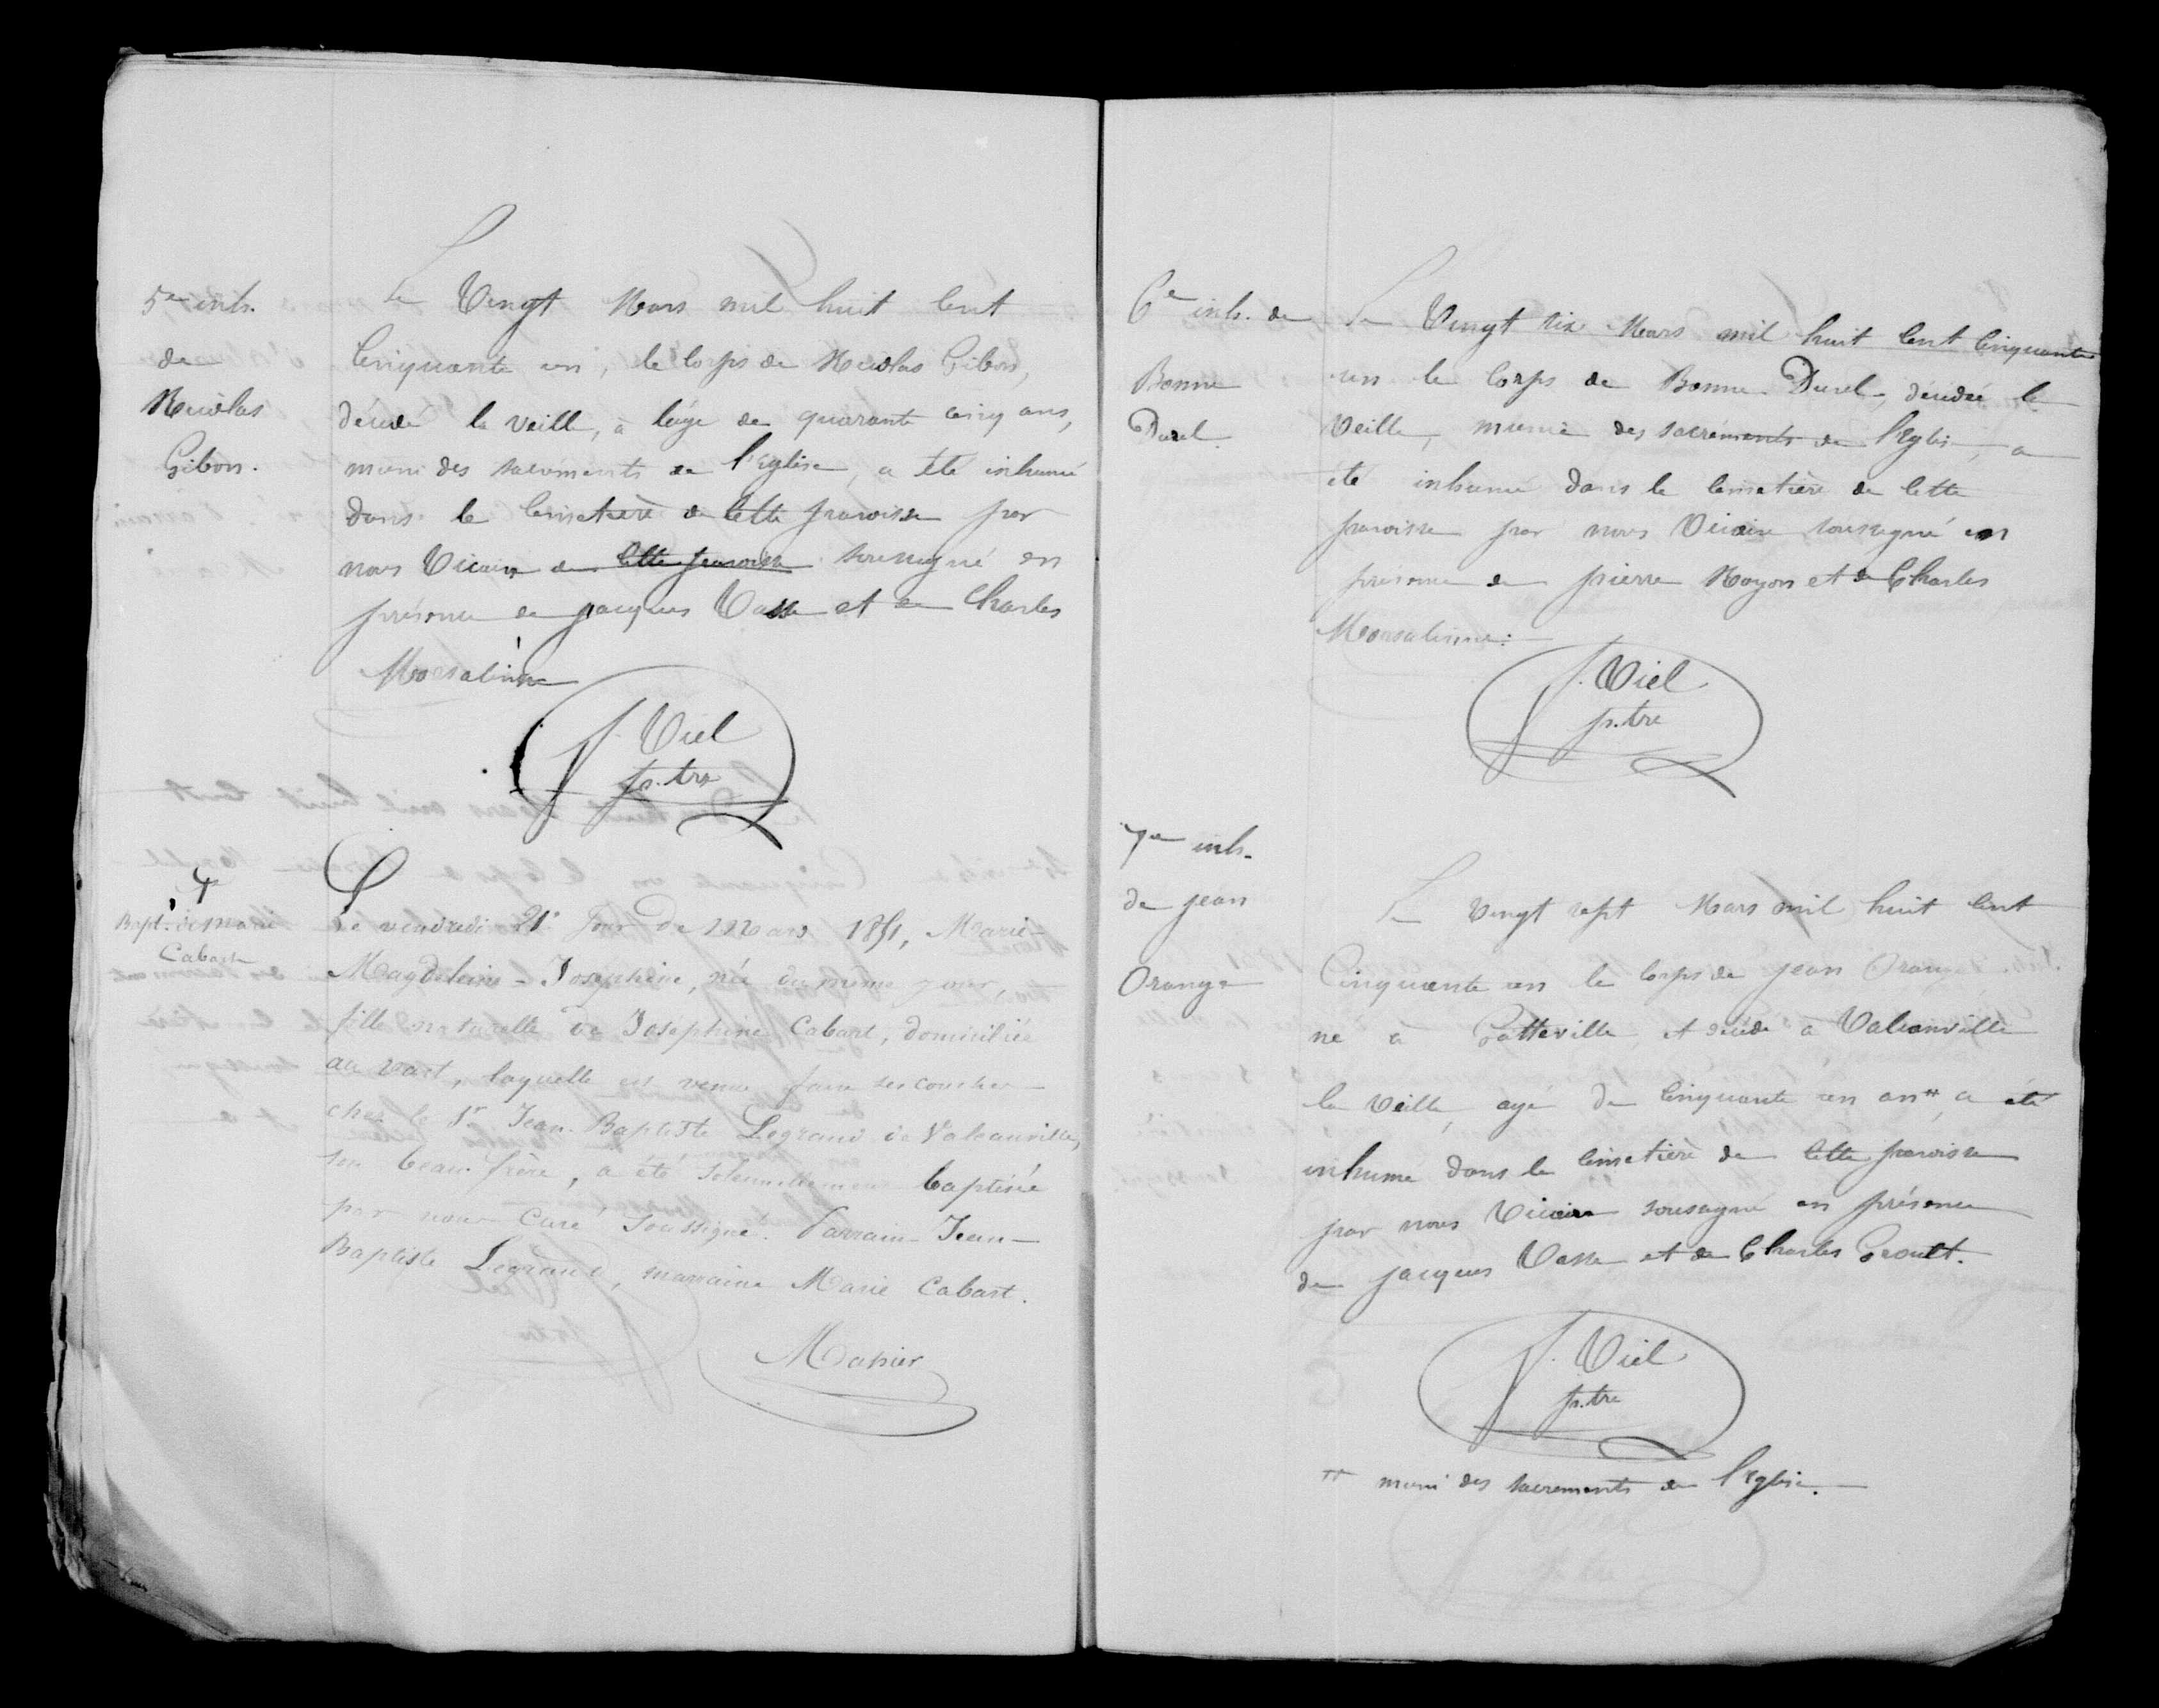 5e inh.
de
Nicolas
Gibon.
Le Vingt Mars mil huit Cent
Cinquante un, le Corps de Nicolas Gibon,
décédé la veille, à l'âge de quarante cinq ans,
muni des sacrements de l'Eglise, a été inhumé
dans le Cimetière de Cette paroisse par
nous Vicaire de Cette paroisse soussigné en
présence de jacques Vasse et de Charles
Mocsalinne
Viel
p.tre
4
Bapt. de Marie
Cabart
Le vendredi 21e Jour de Mars 1851, Marie-
Magdeleine-Josephine, née du même jour,
fille naturelle de Joséphine Cabart, domiciliée
au vast, laquelle est venue faire ses couches
chez le Sr Jean-Baptiste Legrand de Valcanville,
son beau-frère, a été solennellement baptisée
par nous Curé soussigné. Parrain Jean-
Baptiste Legrand, marraine Marie Cabart.
6e inh. de
Bonne
Durel
Le Vingt six Mars mil huit Cent Cinquante
un le Corps de Bonne Durel, décédée la
Veille, munie des sacrements de l'Eglise, a
été inhumé dans le Cimetière de Cette
paroisse par nous Vicaire soussigné en
présence de pierre Noyon et de Charles
Viel
p.tre
7e inh.
de jean
Orange
Le Vingt sept Mars mil huit Cent
Cinquante un le Corps de jean Orange
né à Gatteville, et décédé à Valcanville
la Veille, agé de Cinquante un an ++, a été
inhumé dans le Cimetière de Cette paroisse
par nous Vicaire soussigné en présence
de jacques Vasse et de Charles Groult.
Viel
p.tre
++ muni des sacrements de l'Eglise.